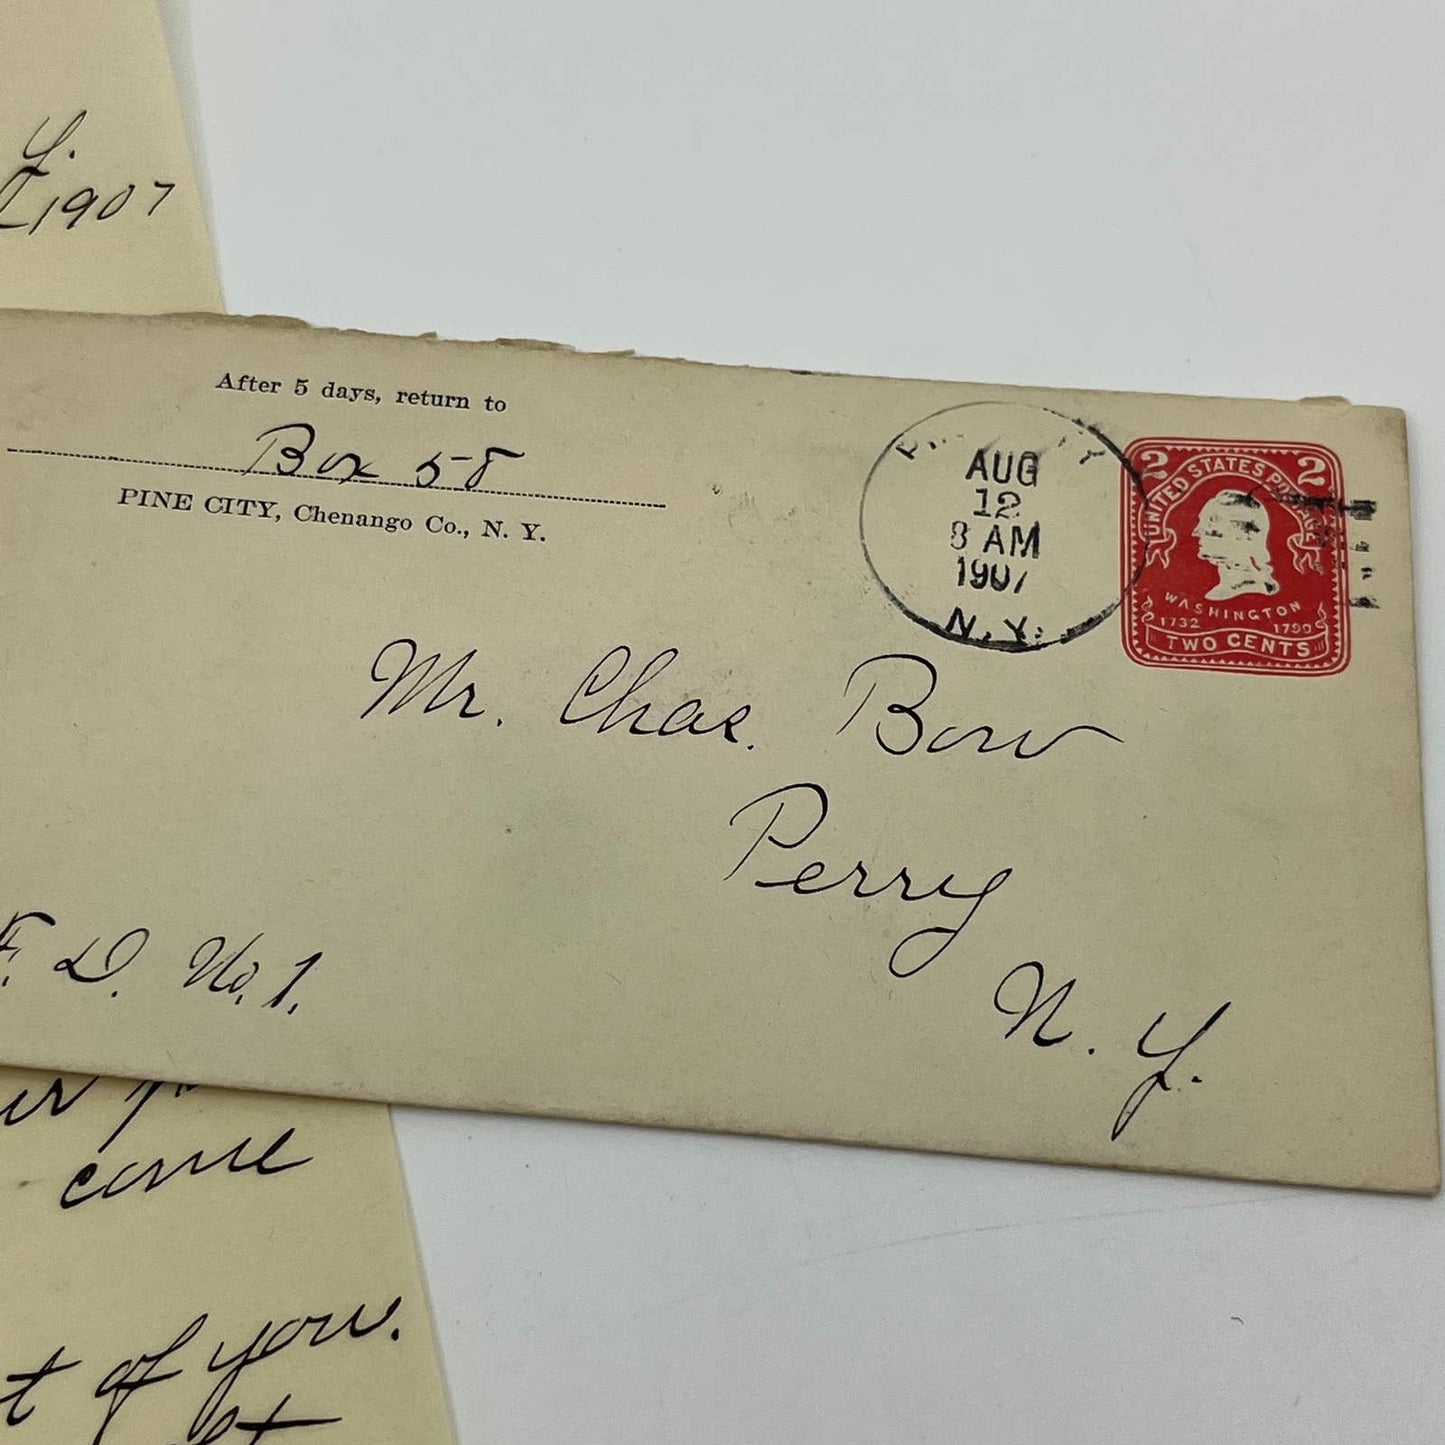 Y.
1907
After 5 days, return to
Box 58
PINE CITY, Chenango Co., N. Y.
AUG
12
8 AM
1907
N.Y.
2 UNITED STATES POSTAGE 2
WASHINGTON
1732 1799
TWO CENTS
Mr. Chas. Bow
Perry
N. Y.
F. D. No. 1.
come
of you.